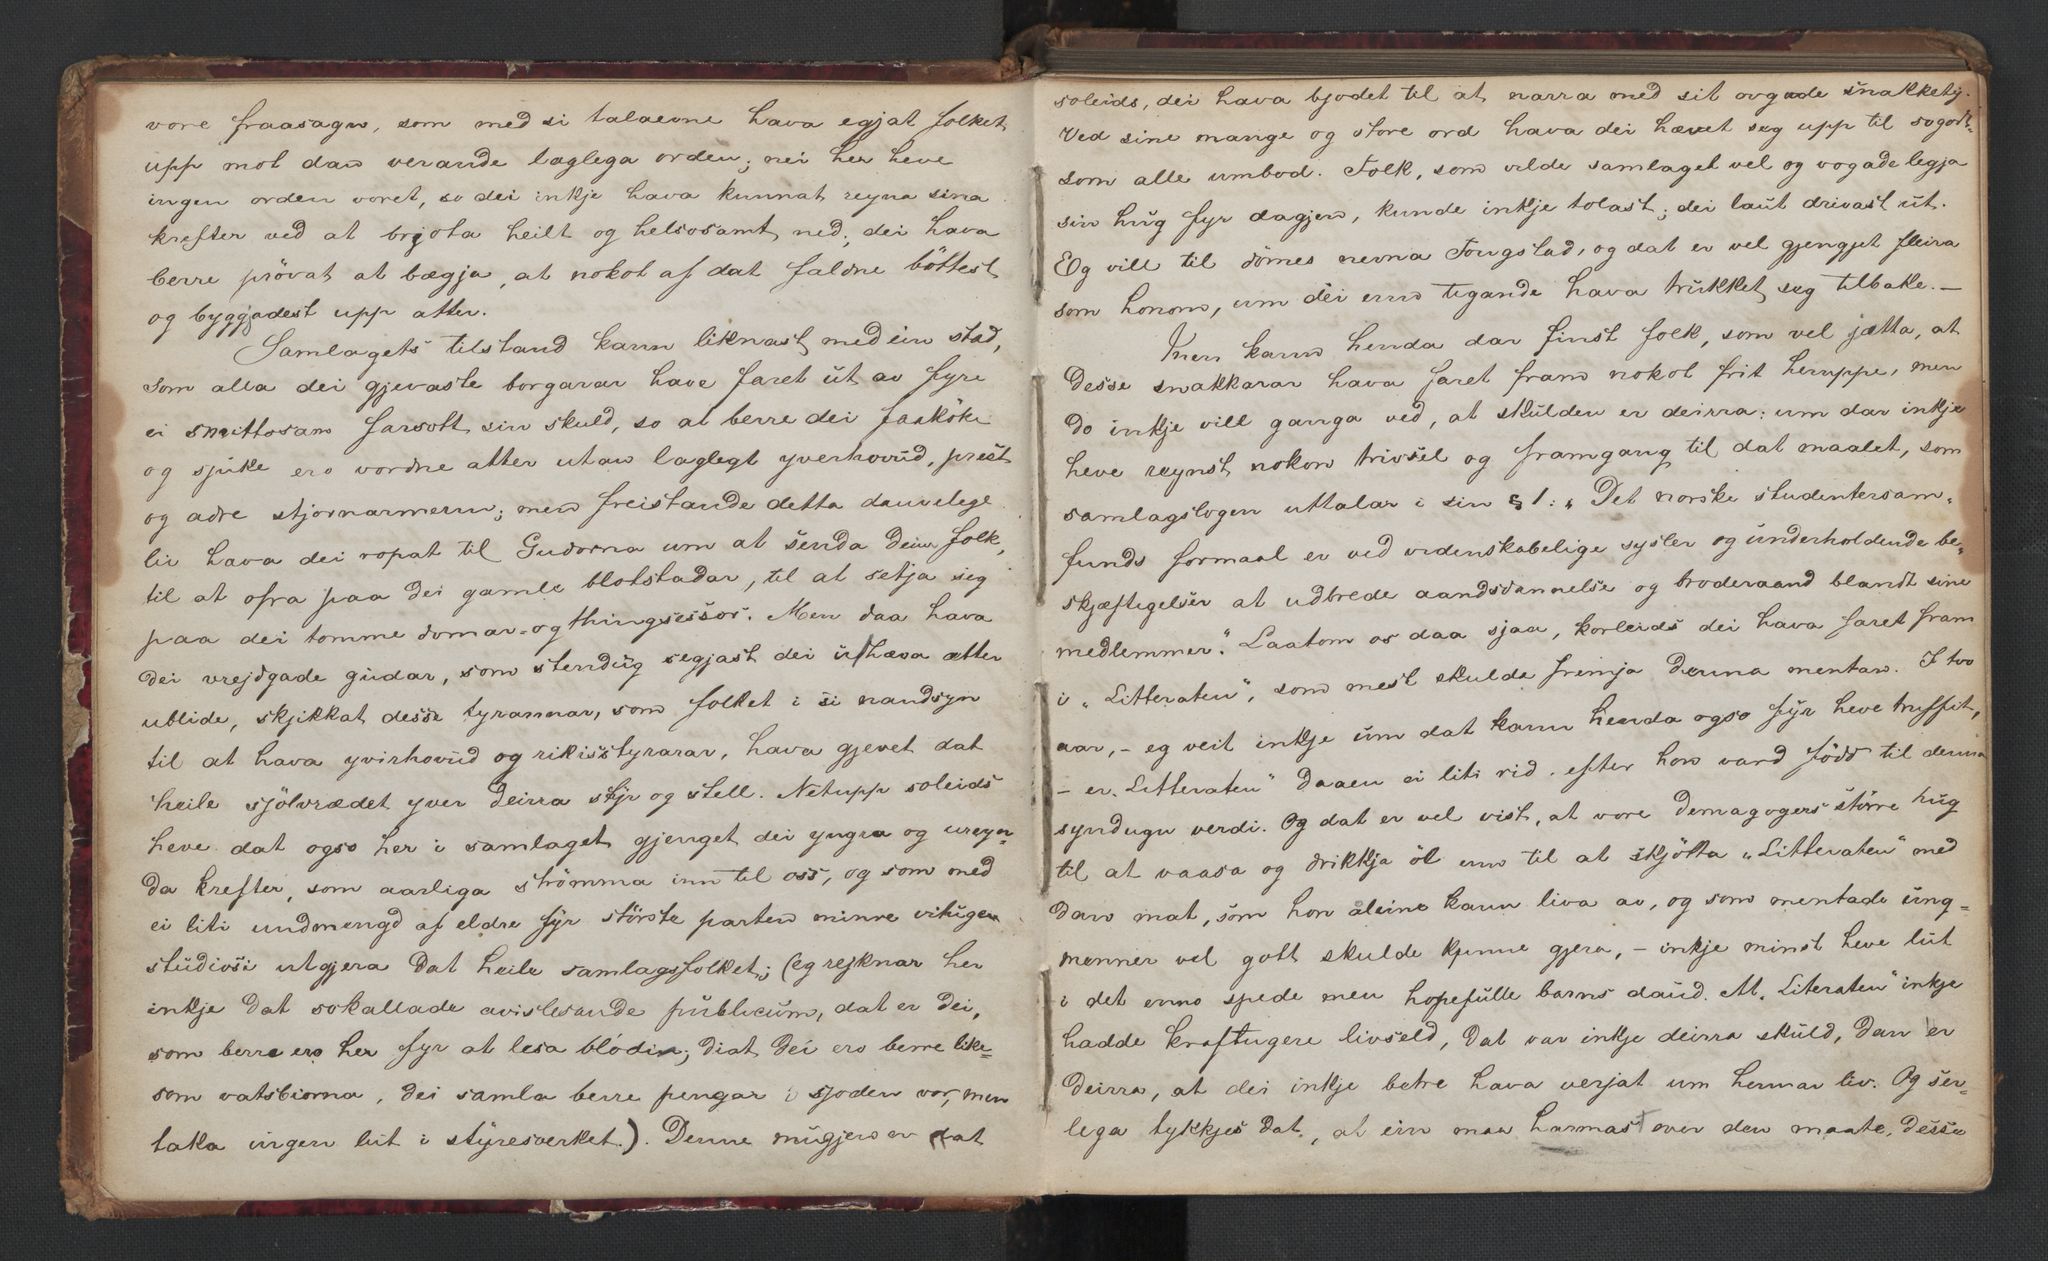 vore fraasagn, som med si talaevne hava egjat folket
upp mot dan verande laglega orden; nei her heve
ingen orden voret, so dei inkje hava kunnat reyna sina
krefter ved at brjota heilt og helsosamt ned; dei hava
berre prövat at bægja, at nokot af dat faldne böttest
og byggjadest upp atter.
Samlagets tilstand kann liknast med ein stad,
som alla dei gjevaste borgarar have faret ut av fyre
ei smittosam farsott sin skuld, so at berre dei faaköke
og sjuke ero vordne atter utan laglegt yverhovud, prest
og adre stjornarmenn; men freistande detta dauvelege
liv hava dei ropat til Gudorna um at senda deim folk,
til at ofra paa dei gamle blotstadar, til at setja seg
paa dei tomme domar- og thingsessor. Men daa hava
dei vrejdgade gudar, som stendug segjast dei ut hæva ætter
ublide, skjikkat desse tyrannar, som folket i si naudsyn
til at hava yvirhovud og rikisstyrarar, hava gjevet dat
heile sjölvrædet yver deirra styr og stell. Netupp soleids
heve dat ogso her i samlaget gjenget dei yngra og ureyn-
da krefter, som aarliga strömma inn til oss, og som med
ei liti undmengd af eldre fyr störste parten minne vitugen
studiosi utgjera dat heile samlagsfolket; (eg rejknar her
inkje dat sokallade avislesande publicum, dat er dei,
som berre ero her fyr at lesa blödin; diat dei ero berre like-
som vatsbiorna, dei samla berre pengar i sjoden vor, men
taka ingen lut i styresverket.). Denne mugjen er dat
soleids, dei hava bjodet til at narra med sit ovgode snakkety.
Ved sine mange og store ord hava dei hævet seg upp til sogodt-
som alle umbod. Folk, som vilde samlaget vel og vogade legja
sin hug fyr dagjen, kunde inkje tolast; dei laut drivast ut.
Eg vill til dömes nevna Fongstad, og dat er vel gjengjet fleira
som honom, um dei enn tigande hava trukket seg tilbake. —
Men kann henda dar finst folk, som vel jætta, at
desse snakkarar hava faret fram nokot frit heruppe, men
do inkje vill ganga ved, at skulden er deirra: um dar inkje
heve reynst nokon trivsel og framgang til dat maalet, som
samlagslogen uttalar i sin § 1: „Det norske studentersam-
funds formaal er ved videnskabelige sysler og underholdende be-
skjæftigelser at udbrede aandsdannelse og broderaand blandt sine
medlemmer". Laatom os daa sjaa, korleids dei hava faret fram
i „Litteraten", som mest skulda fremja denna mentan. I tvo
aar, – eg veit inkje um dat kann henda ogso fyr heve truffit,
– er „Litteraten" daaen ei liti rid efter hon vard född til denna
syndugn verdi. Og dat er vel vist, at vore demagogers större hug
til at vaasa og drikkja öl enn til at skjötta „Litteraten" med
dan mat, som hon aleine kann liva av, og som mentade ung-
menner vel gott skulde kunne gjera, – inkje minst heve lut
i det enno spede men hopefulle barns daud. At „Literaten" inkje
hadde kraftugere livseld, dat var inkje deirra skuld, dan er
deirra, at dei inkje betre hava verjat um hennar liv. Og ser-
lega tykkjes dat, at ein maa harmast over den maate, desse